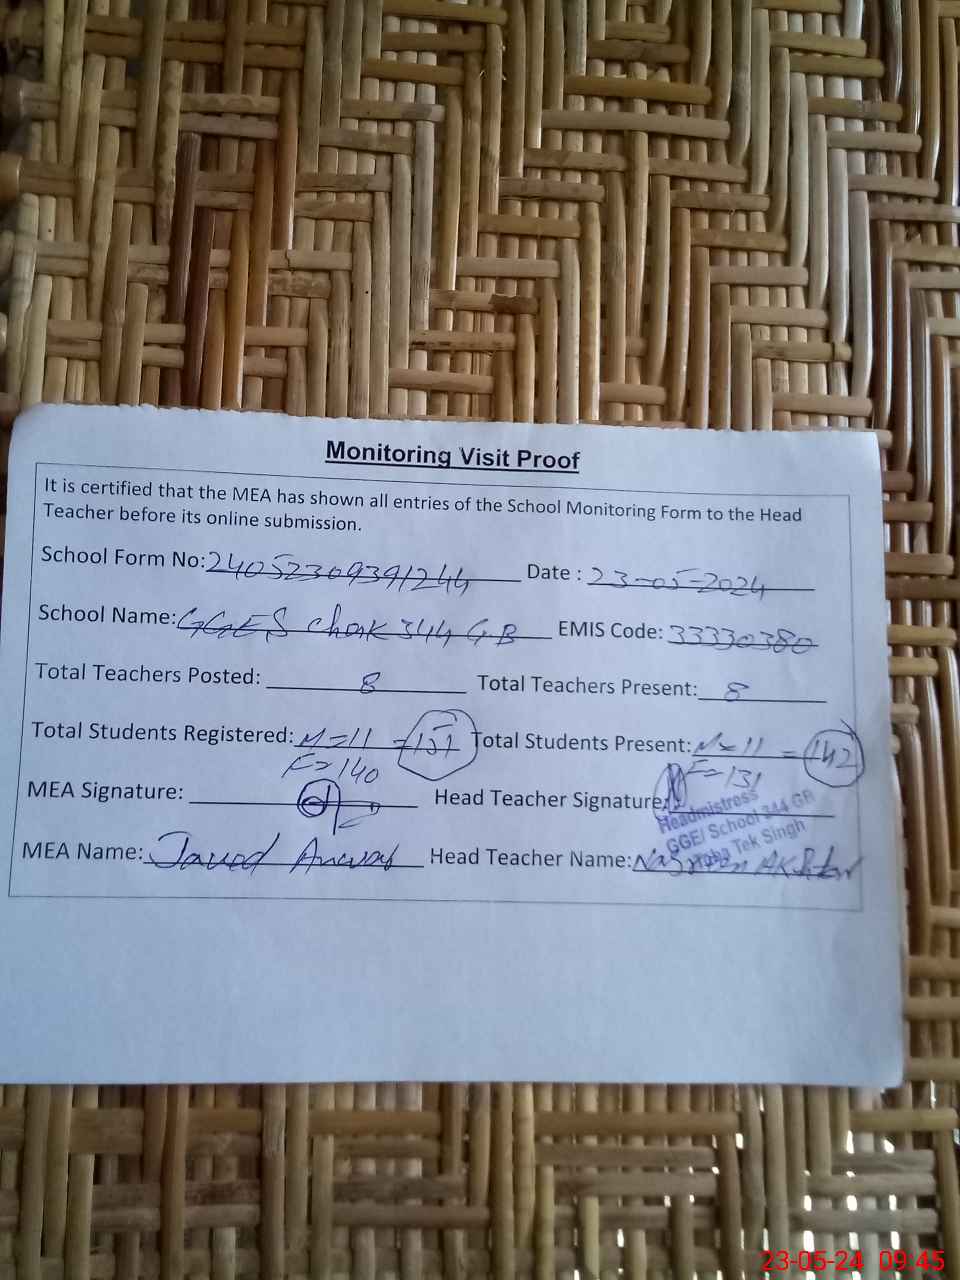 Monitoring Visit Proof
It is certified that the MEA has shown all entries of the School Monitoring Form to the Head
Teacher before its online submission.
School Form No: 24052309391244 Date : 23-05-2024
School Name: GGES Chak 344 GB EMIS Code: 33330380
Total Teachers Posted: 8 Total Teachers Present: 8
Total Students Registered: M=11 =151 Total Students Present: M=11 = 142
F=140 F=131
MEA Signature: Head Teacher Signature:
Headmistress
GGE/ School 344 GB
Toba Tek Singh
MEA Name: Javed Anwar Head Teacher Name: Nasreen Akhtar
23-05-24 09:45